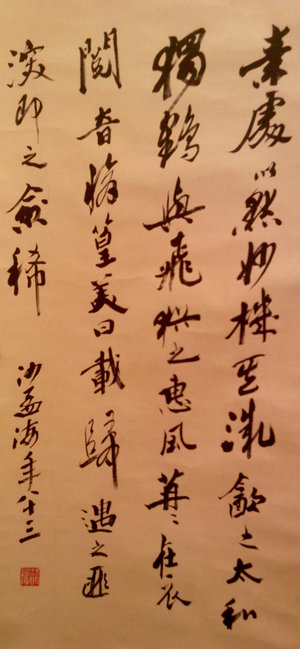 素處以默妙機其微飲之太和
獨鶴與飛猶之惠風苒〻在衣
閱音脩篁美曰載歸遇之匪
深即之愈稀
沙孟海年八十三